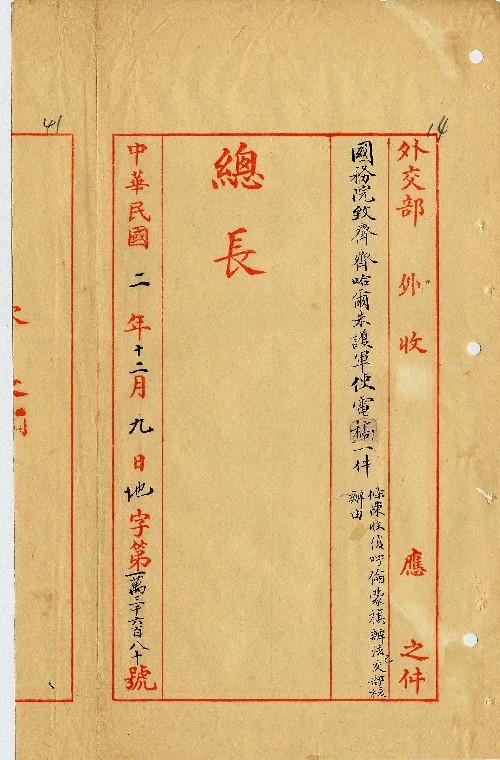 14
外交部 外收 應之件
國務院致齊齊哈爾朱護軍使電稿一件
條陳收復呼倫蒙旗辦法已交部核
辦由
總長
中華民國二年十二月九日地字第一萬三千六百八十號
41